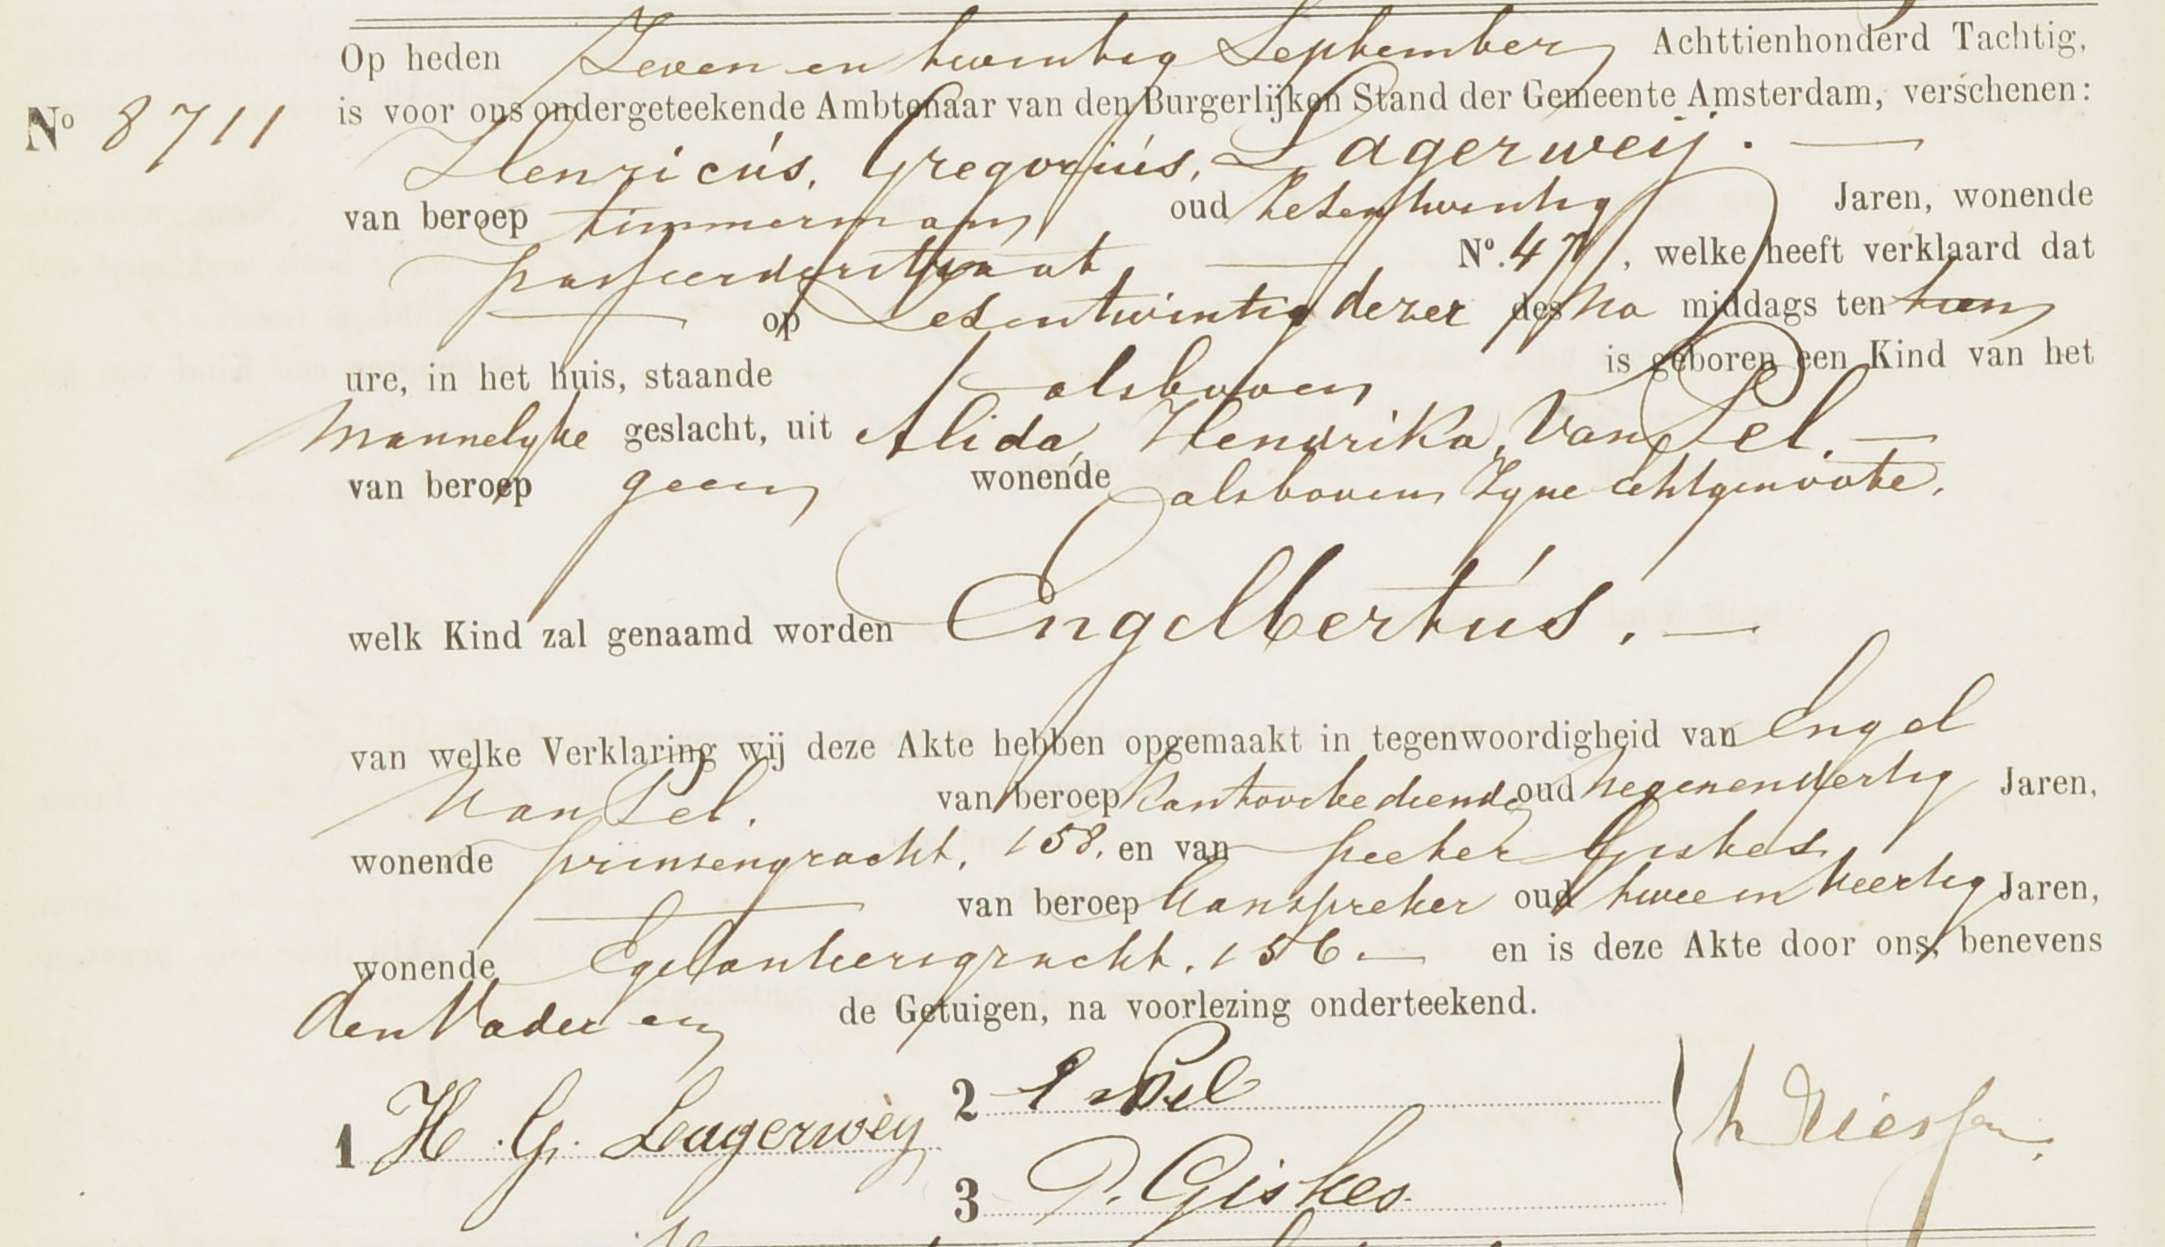 Op heden Zeven en twintig September Achttienhonderd Tachtig,
No 8711 is voor ons ondergeteekende Ambtenaar van den Burgerlijken Stand der Gemeente Amsterdam, verschenen:
Henricús, Gregoriús, Lagerweij. —
van beroep timmerman oud zesentwintig Jaren, wonende
passeerderstraat — No. 47, welke heeft verklaard dat
— op Zesentwintig dezer des Na middags ten tien
ure, in het huis, staande alsboven is geboren een Kind van het
Mannelyke geslacht, uit Alida, Hendrika, Van Pel. —
van beroep geen wonende alsboven Zyne Echtgenoote.
welk Kind zal genaamd worden Engelbertús. —
van welke Verklaring wij deze Akte hebben opgemaakt in tegenwoordigheid van Engel
Van Pel. van beroep Kantoorbediende oud Negenendertig Jaren,
wonende prinsengracht, 158. en van peeter Giskes
— van beroep Aanspreker oud tweeenveertig Jaren,
wonende Egelantiersgracht. 156. — en is deze Akte door ons, benevens
den Vader en de Getuigen, na voorlezing onderteekend.
1 H. G. Lagerweÿ 2 E v Pel
3 P. Giskes